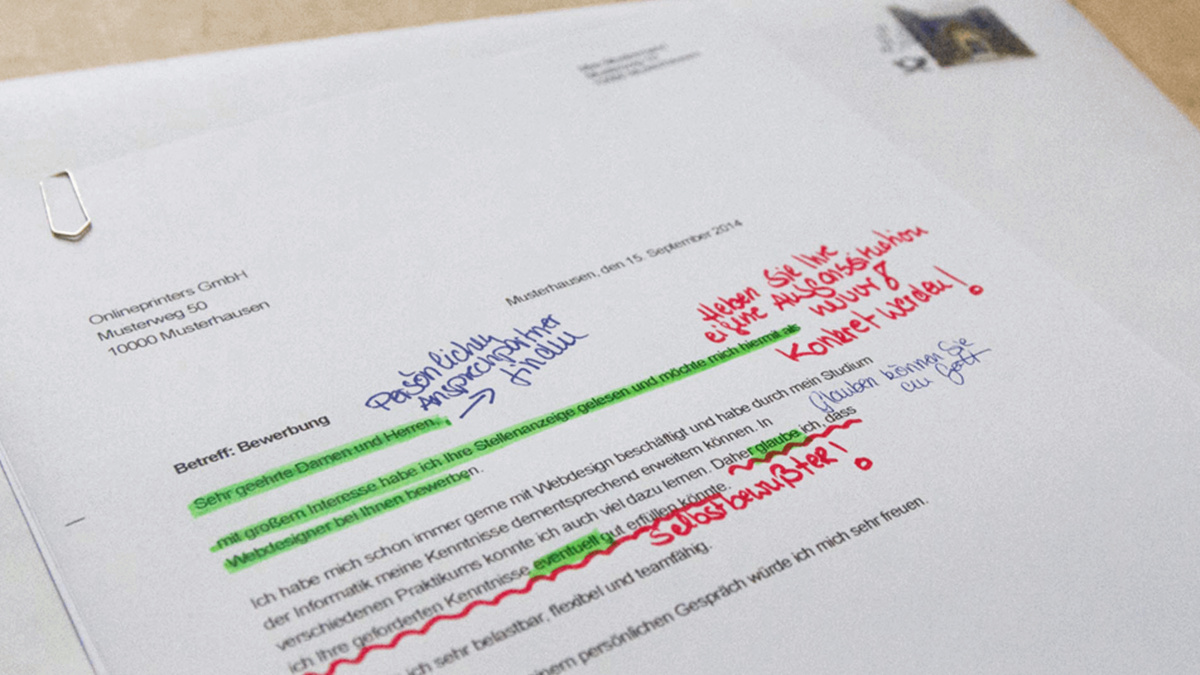 Onlineprinters GmbH
Musterweg 50
10000 Musterhausen
Musterhausen, den 15. September 2014
Heben Sie Ihre
eigene Ausgangssituation
hervor &
Konkret werden!
Persönlichen
Ansprechpartner
→ finden
Betreff: Bewerbung
Sehr geehrte Damen und Herren,
mit großem Interesse habe ich Ihre Stellenanzeige gelesen und möchte mich hiermit als
Webdesigner bei Ihnen bewerben.
Glauben können Sie
an Gott
Ich habe mich schon immer gerne mit Webdesign beschäftigt und habe durch mein Studium
der Informatik meine Kenntnisse dementsprechend erweitern können. In
verschiedenen Praktikums konnte ich auch viel dazu lernen. Daher glaube ich, dass
ich Ihre geforderten Kenntnisse eventuell gut erfüllen könnte.
selbstbewußter!
ich sehr belastbar, flexibel und teamfähig.
einem persönlichen Gespräch würde ich mich sehr freuen.